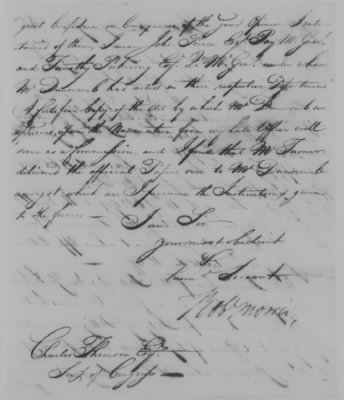 great Confidence in Consequence of the good Opinion I enter-
tained of them, I mean John Pierce Esqr. Pay M. Genl.
and Timothy Pickering Esqr. Q. M. Genl. under whom
Mr Dunscomb has acted in their respective Departments
A Certified Copy of the Act by which Mr Dunscomb was
appointed, upon the Nomination from my late Office will
serve as a Commission, and I find that Mr Turner
delivered the official Papers over to Mr Dunscomb
amongst which are I presume the Instructions given
to the former —
I am Sir
your most obedient
&
humb. Servant
Robt Morris,
Charles Thomson Esqr.
Secy of Congress —